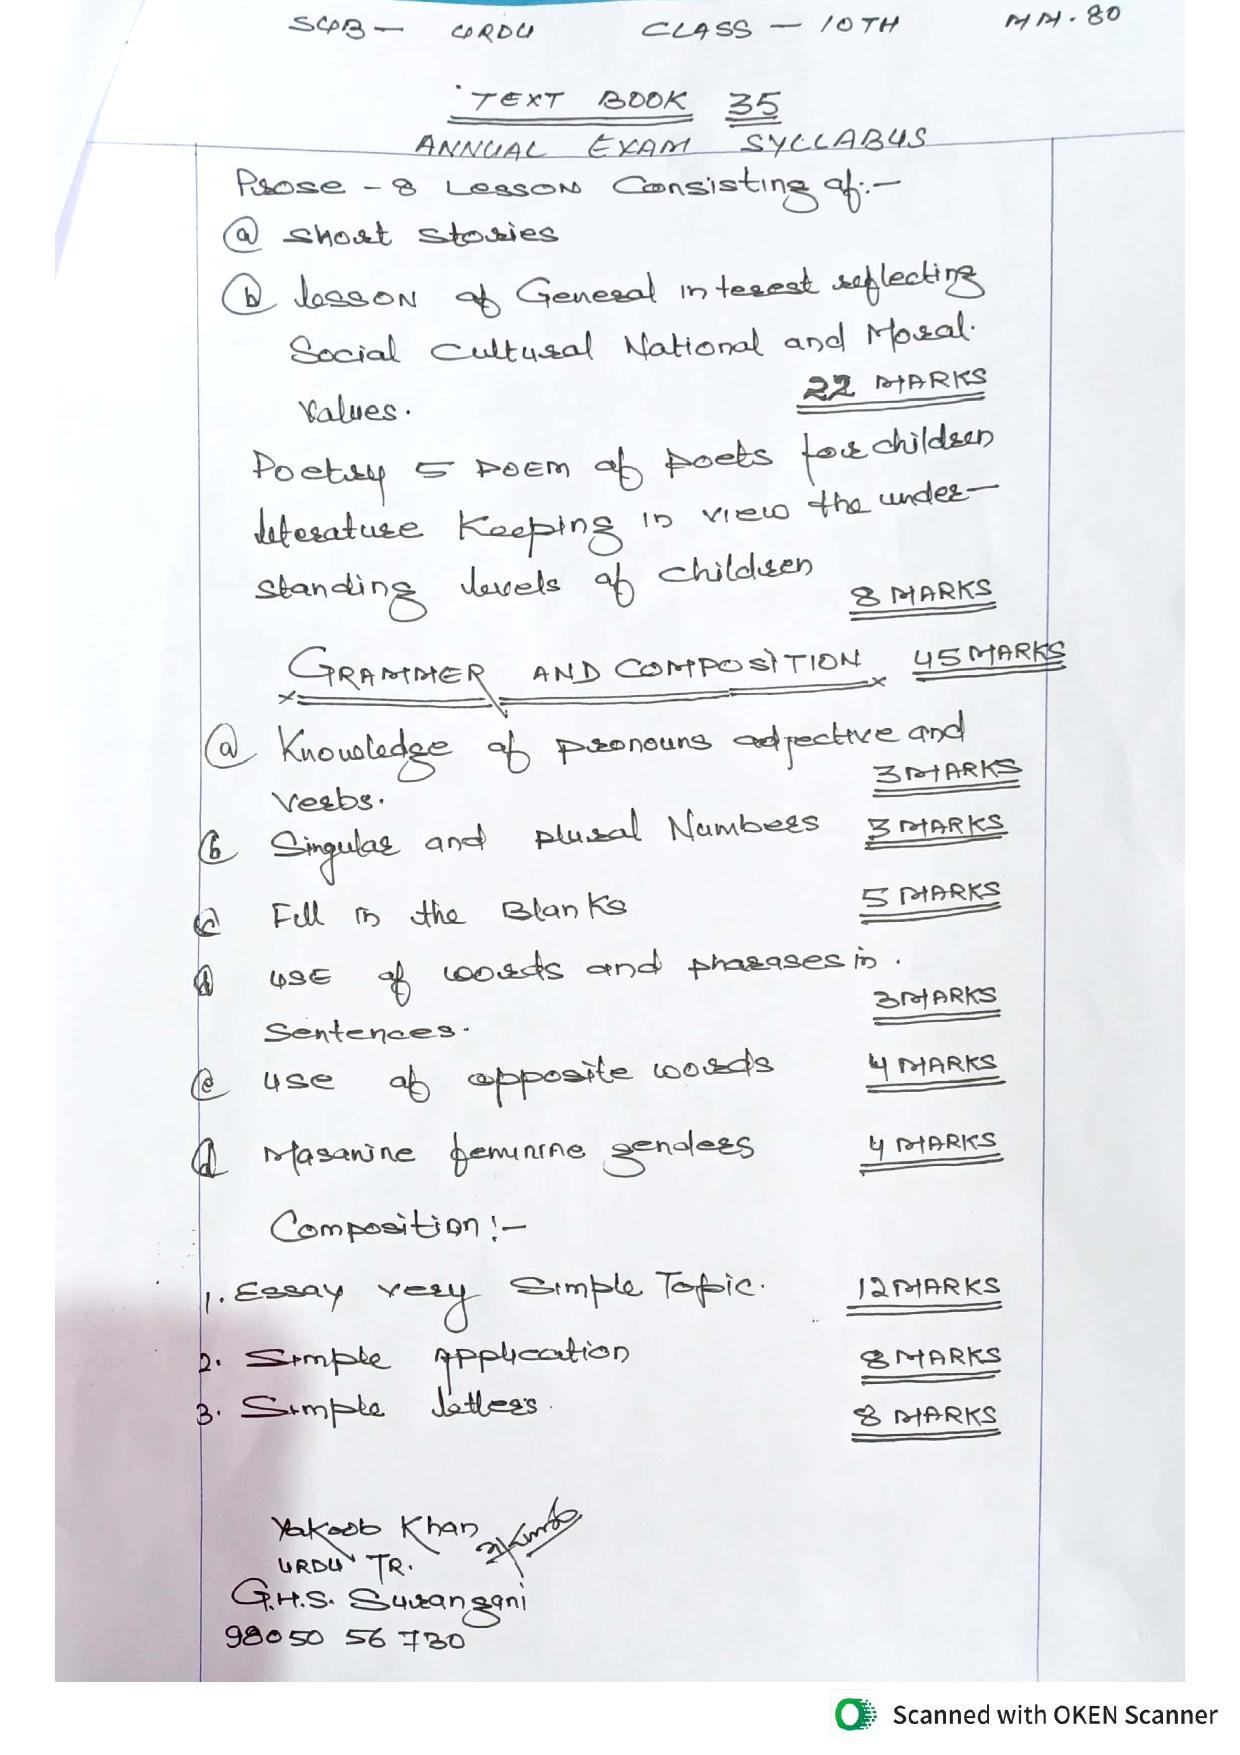 SUB - URDU CLASS - 10TH MM. 80
TEXT BOOK 35
ANNUAL EXAM SYLLABUS
Prose - 8 Lesson Consisting of :-
(a) Short Stories
(b) lesson of General interest reflecting
Social Cultural National and Moral
Values. 22 MARKS
Poetry 5 POEM of poets for children
literature Keeping in view the under-
standing levels of children
8 MARKS
GRAMMER AND COMPOSITION 45 MARKS
(a) Knowledge of pronouns adjective and
verbs. 3 MARKS
(b) Singular and plural Numbers 3 MARKS
(c) Fill in the Blanks 5 MARKS
(d) USE of words and pharases in .
Sentences. 3 MARKS
(e) use of opposite words 4 MARKS
(d) Masanine feminine genders 4 MARKS
Composition :-
1. Essay very Simple Topic. 12 MARKS
2. Simple Application 8 MARKS
3. Simple letters. 8 MARKS
Yakoob Khan
URDU TR.
G.H.S. Surangani
98050 56730
Scanned with OKEN Scanner